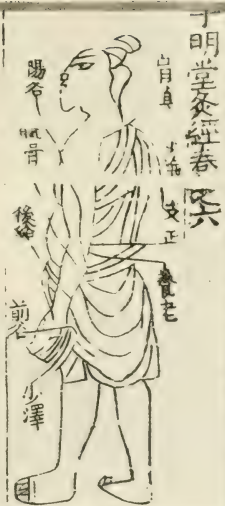 明堂灸經卷之六
肩貞
小海
支正
養老
陽谷
腕骨
後谿
前谷
少澤